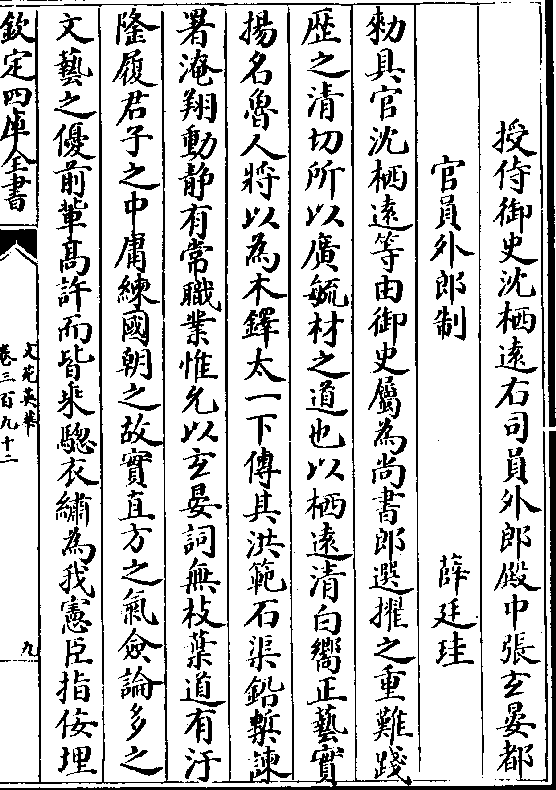 授侍御史沈栖逺右司員外郎殿中張𤣥晏都
官員外郎制　薛廷珪
勑具官沈栖逺等由御史屬為尚書郎選擢之重難踐
歴之清切所以廣毓材之道也以栖逺清白嚮正藝實
揚名魯人將以為木鐸太一下傳其洪範石渠鉛槧諫
署淹翔動静有常職業惟允以𤣥晏詞無枝葉道有汙
隆履君子之中庸練國朝之故實直方之氣僉論多之
文藝之優前輩髙許而皆乗驄衣繡為我憲臣指佞埋
欽定四庫全書
文苑英華
卷三百九十二
九